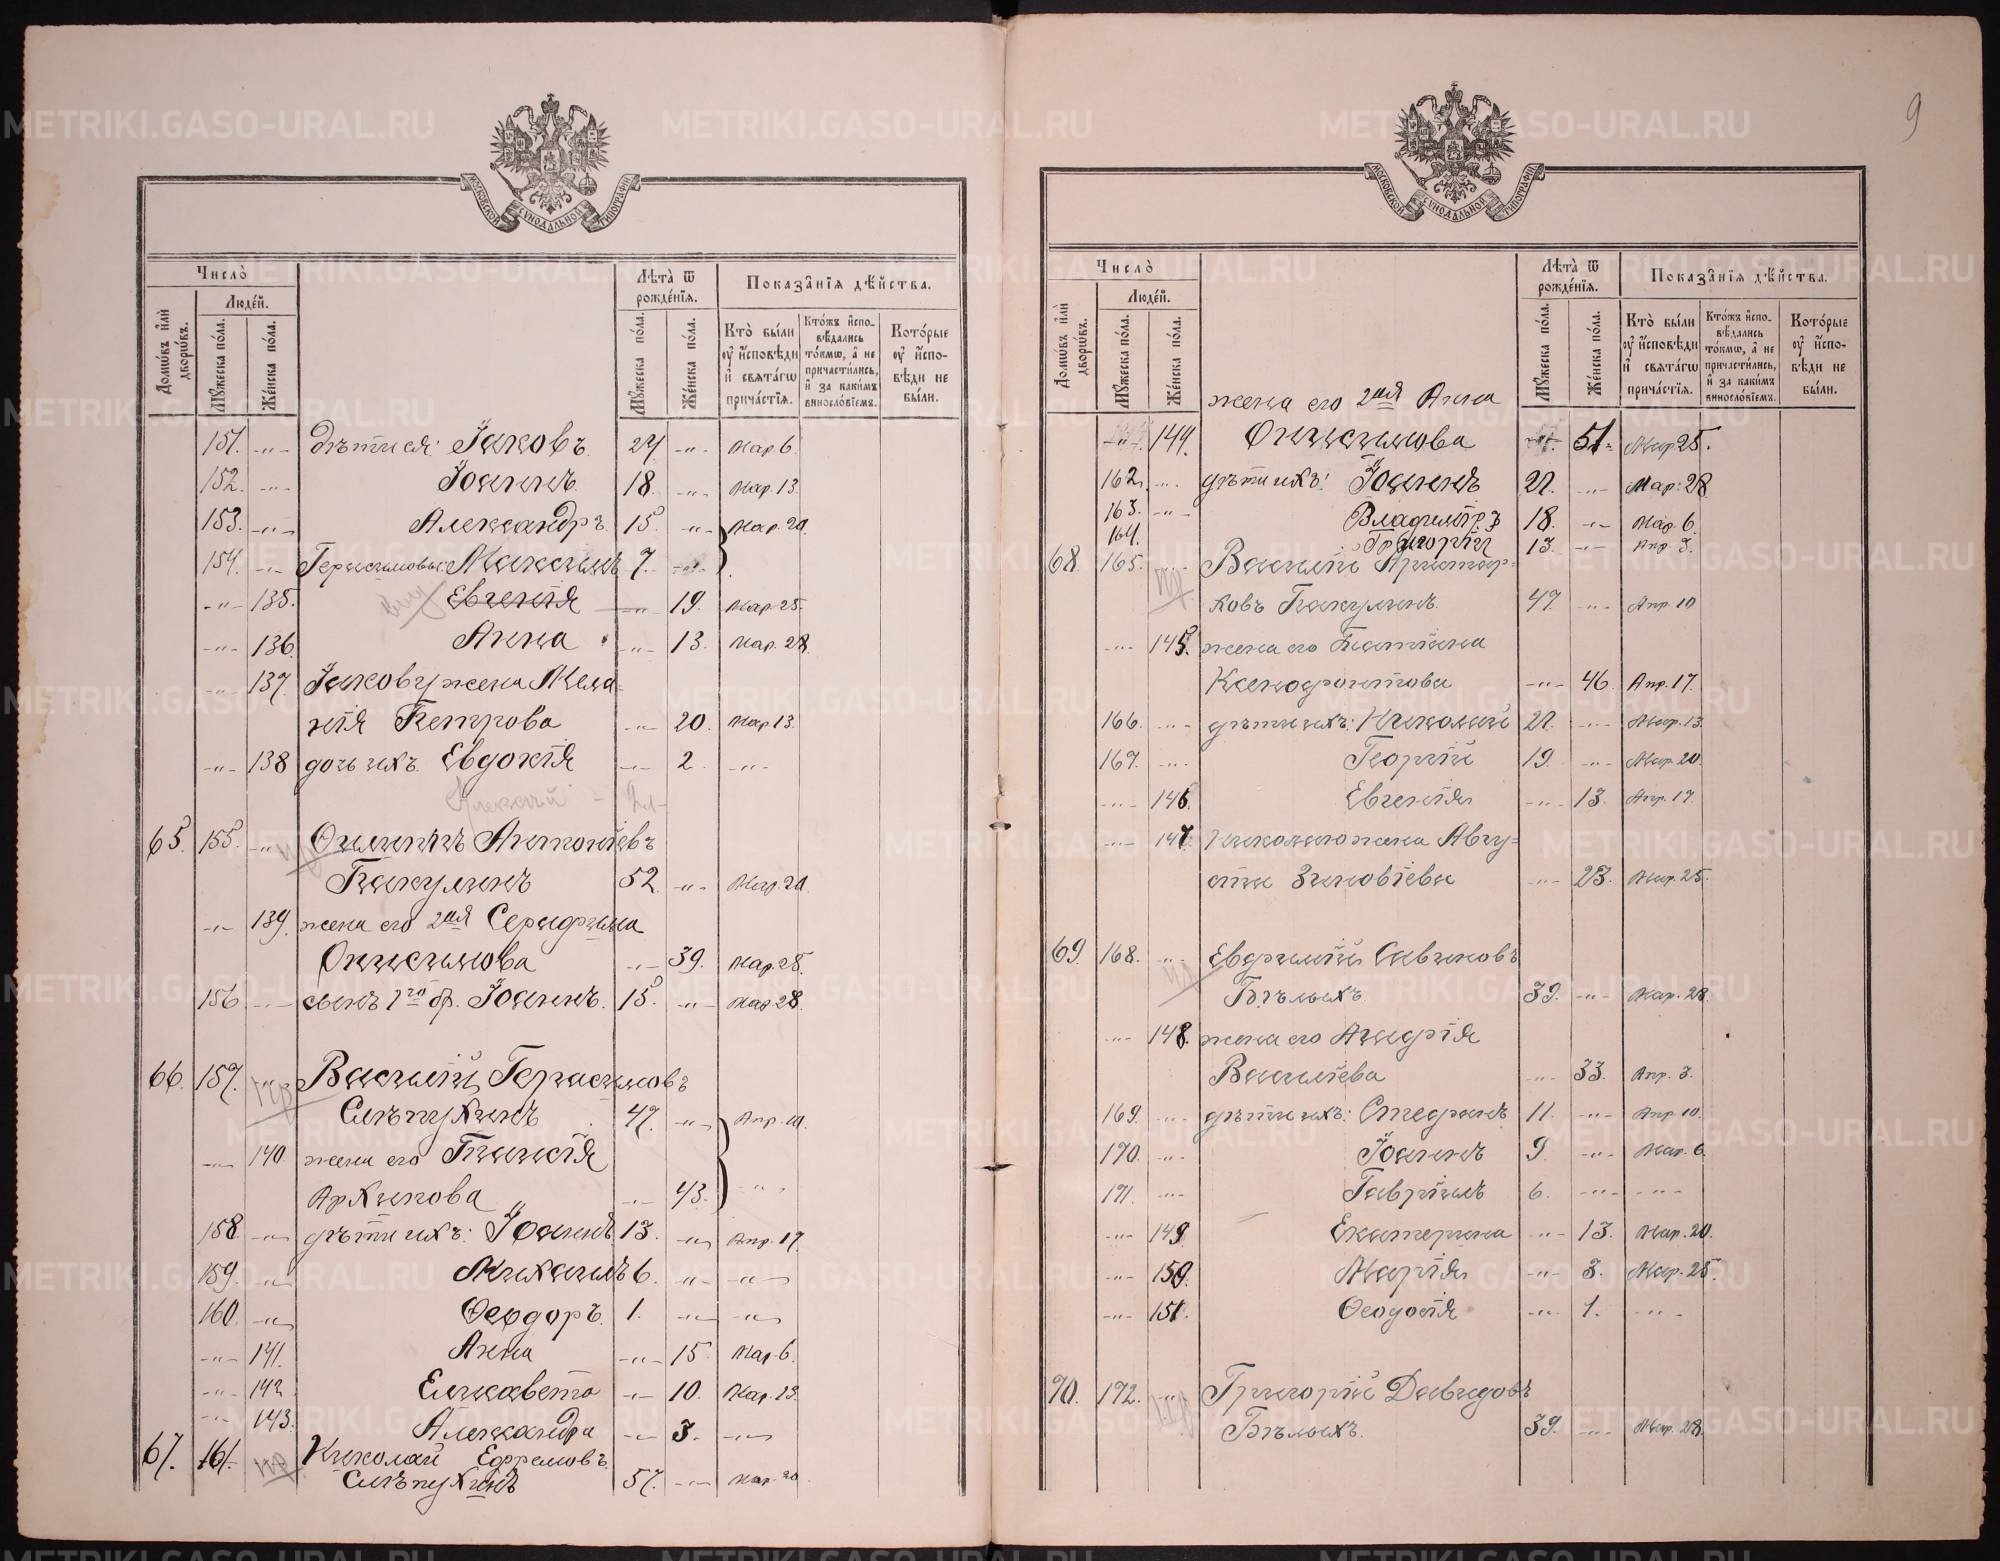 МОСКОВСКОЙ СѴНОДАЛЬНОЙ ТИПОГРАФІИ
Число̀
Людéй.
Домѡ́въ и҆лѝ дворѡ́въ.
Мꙋ́жеска по́ла.
Же́нска по́ла.
Лѣта̀ ѿ рожде́нїѧ.
Мꙋ́жеска по́ла.
Же́нска по́ла.
Показа̑нїѧ дѣ́йства.
Кто̀ бы́ли оу҆ и҆сповѣди и҆ свѧта́гѡ прича́стїѧ.
Кто́жъ и҆спо- вѣдались то́кмѡ, а҆ не причасти́лись, и҆ за каки́мъ винослові́емъ.
Кото́рые оу҆ и҆спо- вѣди не бы́ли.
151. -„- дѣти ея: Іаковъ. 24. -„- Мар. 6.
152. -„- Іоаннъ. 18. -„- Мар. 13.
153. -„- Александръ. 15. -„- Мар. 20.
154. -„- Герасимовы: Максимъ 7.
-„- 135. Евгенія -„- 19. Мар. 25.
-„- 136. Анна -„- 13. Мар. 28.
-„- 137. Іакову жена Мела-
нія Петрова -„- 20. Мар. 13.
-„- 138 дочь ихъ Евдокія -„- 2. -„-
Алексѣй
65. 155. -„- Филиппъ Антоніевъ
Пакулинъ 52. -„- Мар. 20.
-„- 139. жена его 2ая Серафима
Онисимова -„- 39. Мар. 25.
156 -„- сынъ 1го бр. Іоаннъ. 15. -„- Мар. 28.
66. 157. пр Василій Герасимовъ
Слѣпухинъ 47. -„- Апр. 10.
-„- 140 жена его Таисія
Архипова -„- 43. -„-
158. -„- дѣти ихъ: Іоаннъ. 13. -„- Апр. 17.
159. -„- Михаилъ 6. -„- -„-
160. -„- Ѳеодоръ. 1. -„- -„-
-„- 141. Анна -„- 15. Мар. 6.
-„- 142. Елисавета -„- 10. Мар. 13.
-„- 143. Александра -„- 3. -„-
67. 161. пр Николай Ефремовъ
Слѣпухинъ 57. -„- Мар. 20
9
МОСКОВСКОЙ СѴНОДАЛЬНОЙ ТИПОГРАФІИ
Число̀
Людéй.
Домѡ́въ и҆лѝ дворѡ́въ.
Мꙋ́жеска по́ла.
Же́нска по́ла.
Лѣта̀ ѿ рожде́нїѧ.
Мꙋ́жеска по́ла.
Же́нска по́ла.
Показа̑нїѧ дѣ́йства.
Кто̀ бы́ли оу҆ и҆сповѣди и҆ свѧта́гѡ прича́стїѧ.
Кто́жъ и҆спо- вѣдались то́кмѡ, а҆ не причасти́лись, и҆ за каки́мъ винослові́емъ.
Кото́рые оу҆ и҆спо- вѣди не бы́ли.
жена его 2ая Анна
-„- 144. Онисимова 51. Мар. 25.
162. -„- дѣти ихъ: Іоаннъ 21. -„- Мар. 28
163. -„- Владиміръ 18. -„- Мар. 6.
164. Григорій 13. -„- Апр. 3.
68. 165. -„- Василій Аристар-
пр ховъ Пакулинъ. 47. -„- Апр. 10
-„- 145. жена его Татіана
Ксенофонтова -„- 46. Апр. 17.
166. -„- дѣти ихъ: Николай 21. -„- Мар. 13.
167. -„- Георгій 19. -„- Мар. 20.
-„- 146. Евгенія -„- 13. Апр. 17.
-„- 147. Николаю жена Авгу-
ста Зиновіева -„- 23. Мар. 25.
69. 168. -„- Евфимій Савиновъ
пр Бѣлыхъ. 39. -„- Мар. 28.
-„- 148. жена его Агафія
Василіева -„- 33. Апр. 3.
169. -„- дѣти ихъ: Стефанъ 11. -„- Апр. 10.
170. -„- Іоаннъ 9. -„- Мар. 6.
171. -„- Гавріилъ 6. -„- -„-
-„- 149. Екатерина -„- 13. Мар. 20.
-„- 150. Марія -„- 3. Мар. 25.
-„- 151. Ѳеодосія -„- 1. -„-
70. 172. -„- Григорій Давидовъ
Бѣлыхъ. 39. -„- Мар. 28.
METRIKI.GASO-URAL.RU